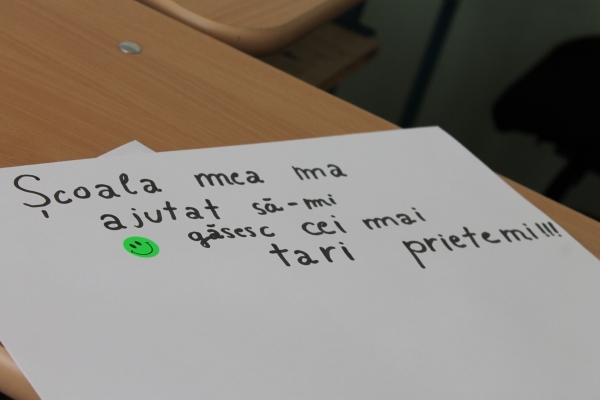 Școala mea ma
ajutat să-mi
găsesc cei mai
tari prieteni!!!